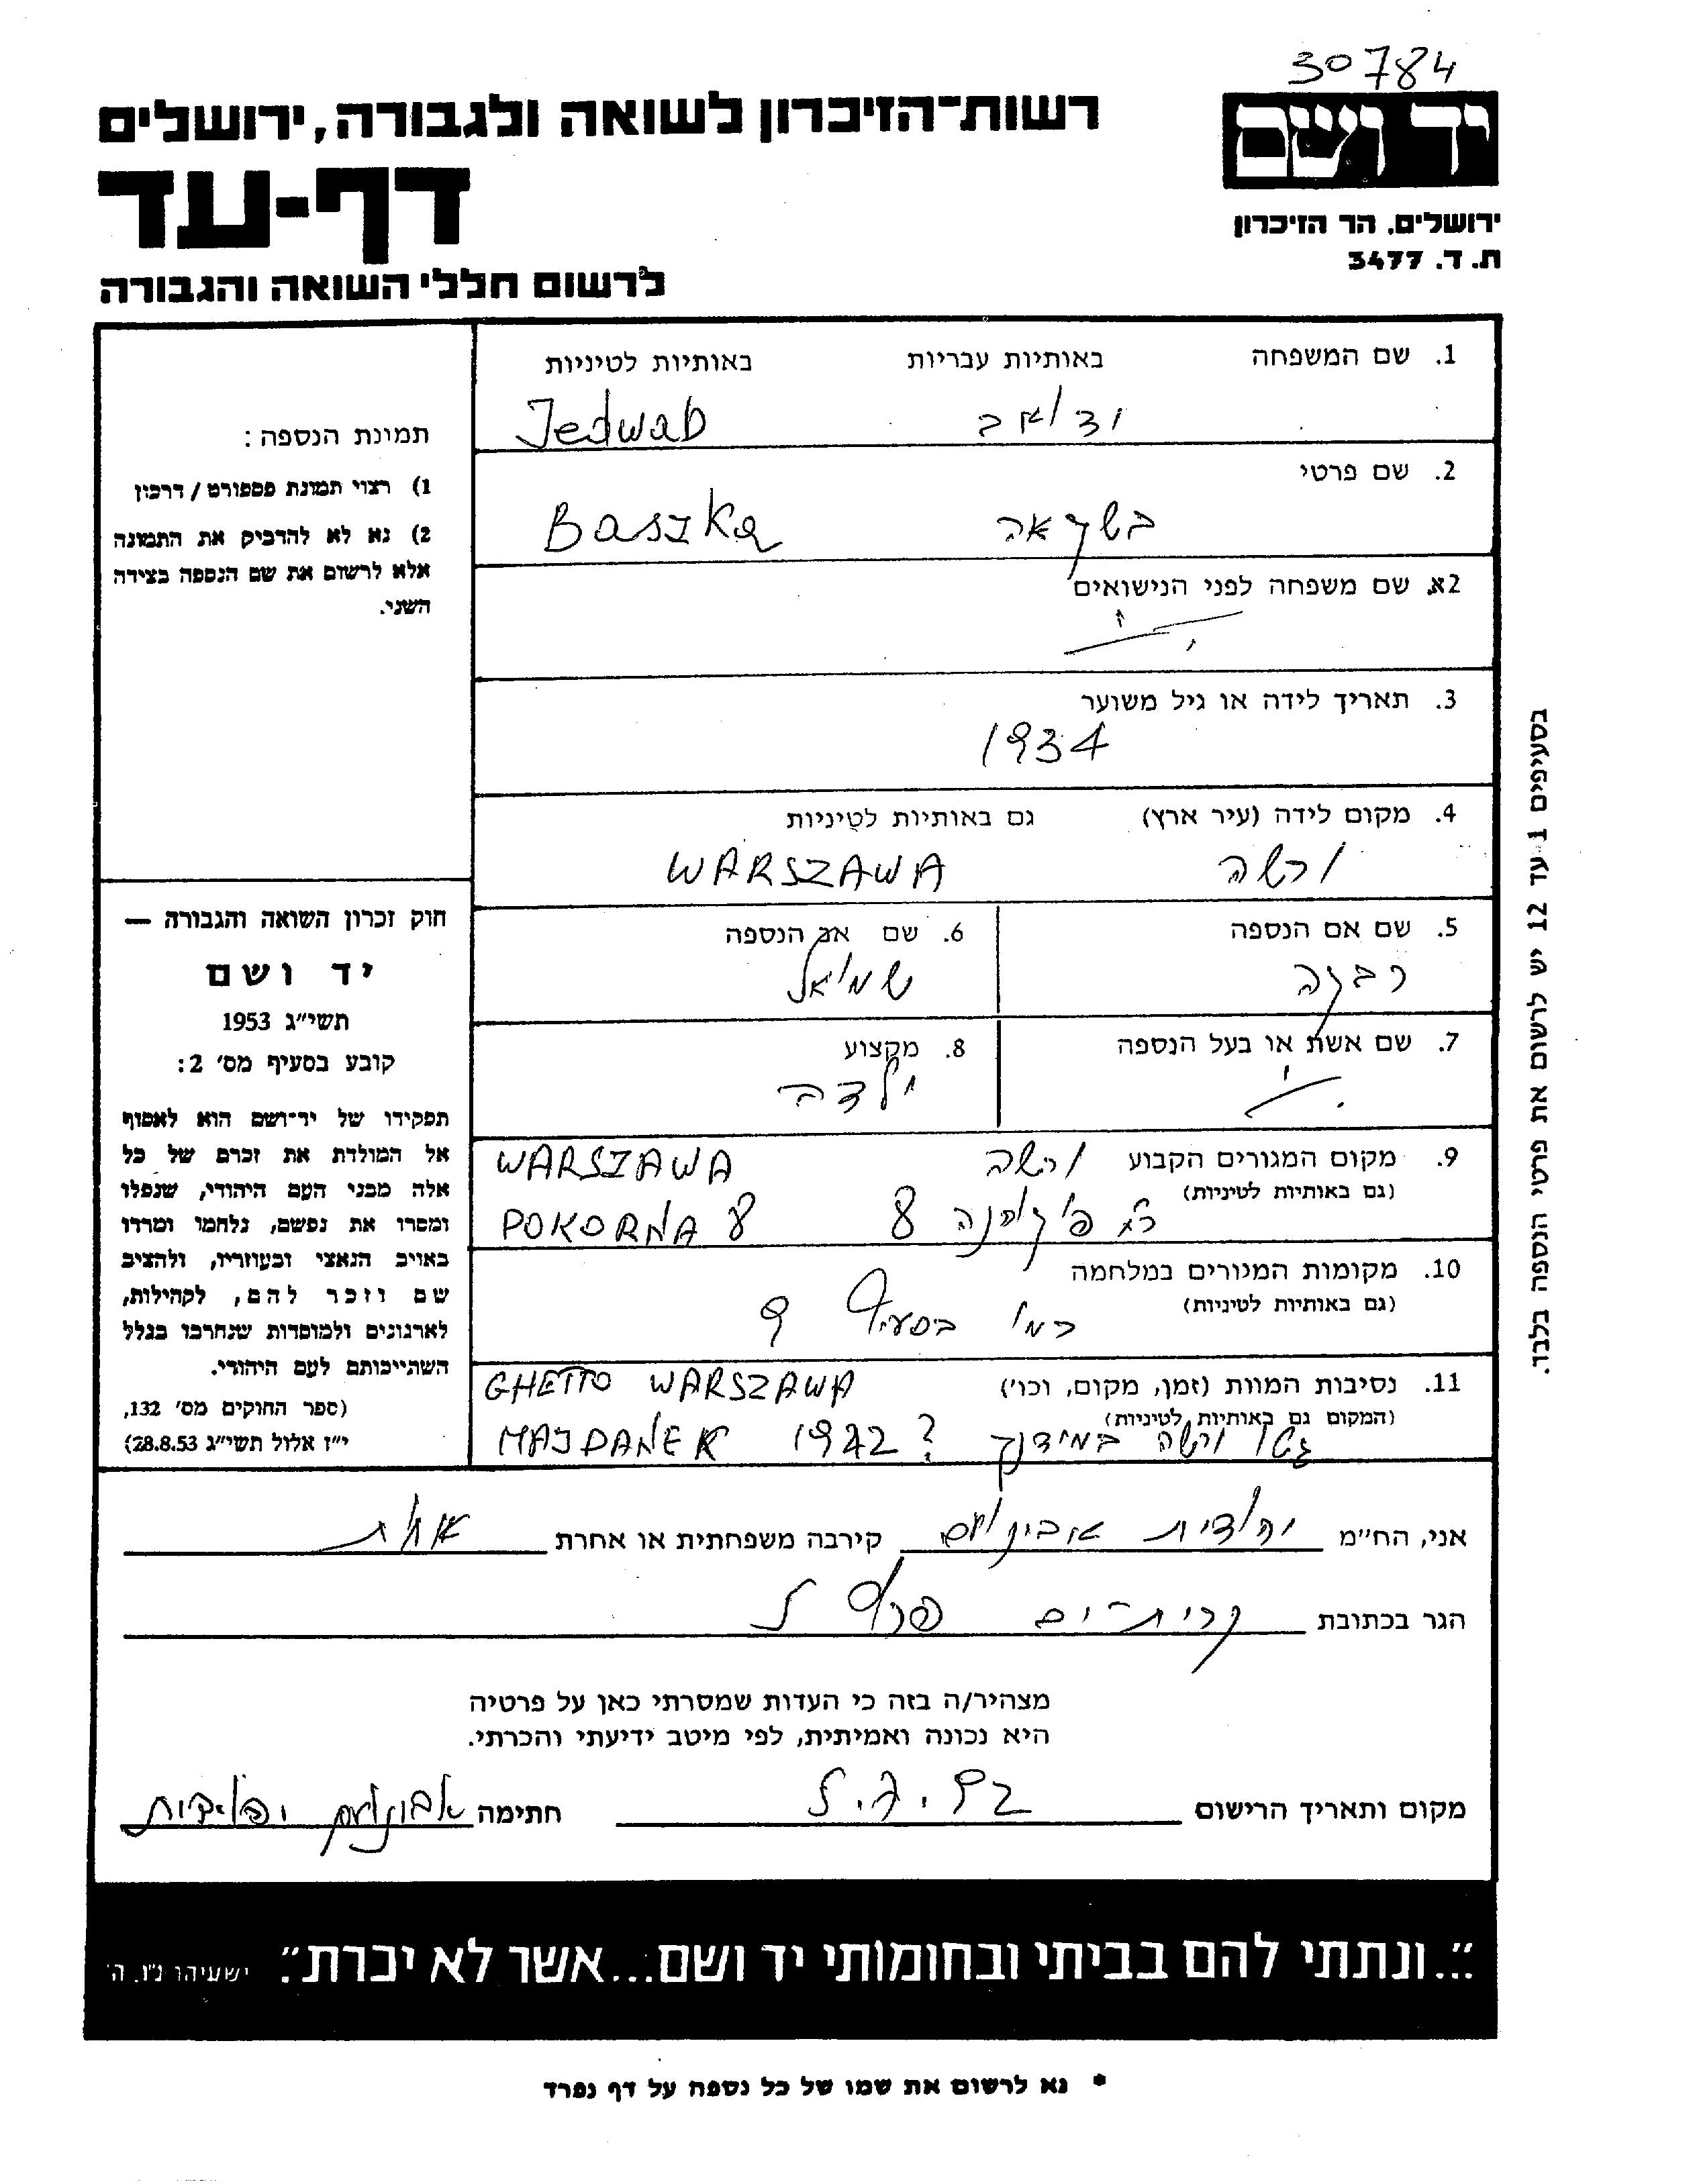 30784
יד ושם
ירושלים, הר הזיכרון
ת. ד. 3477
רשות־הזיכרון לשואה ולגבורה, ירושלים
דף-עד
לרשום חללי השואה והגבורה
1. שם המשפחה באותיות עבריות באותיות לטיניות
Jedwab
2. שם פרטי
Baszka
2א. שם משפחה לפני הנישואים
3. תאריך לידה או גיל משוער
1934
4. מקום לידה (עיר ארץ) גם באותיות לטיניות
ורשה WARSZAWA
5. שם אם הנספה
רבקה
6. שם אב הנספה
שמואל
7. שם אשת או בעל הנספה
8. מקצוע
ילדה
9. מקום המגורים הקבוע ורשה WARSZAWA
(גם באותיות לטיניות)
רח פוקורנה 8 POKORNA 8
10. מקומות המגורים במלחמה
(גם באותיות לטיניות)
כמו בסעיף 9
11. נסיבות המוות (זמן, מקום, וכו') GHETTO WARSZAWA
(המקום גם באותיות לטיניות)
גטו ורשה במידנק MAJDANEK 1942 ?
תמונת הנספה:
1) רצוי תמונת פספורט / דרכון
2) נא לא להדביק את התמונה
אלא לרשום את שם הנספה בצידה
השני.
חוק זכרון השואה והגבורה —
יד ושם
תשי״ג 1953
קובע בסעיף מס׳ 2:
תפקידו של יד־ושם הוא לאסוף
אל המולדת את זכרם של כל
אלה מבני העם היהודי, שנפלו
ומסרו את נפשם, נלחמו ומרדו
באויב הנאצי ובעוזריו, ולהציב
שם וזכר להם, לקהילות,
לארגונים ולמוסדות שנחרבו בגלל
השתייכותם לעם היהודי.
(ספר החוקים מס׳ 132,
י״ז אלול תשי״ג 28.8.53)
בסעיפים 1 עד 12 יש לרשום את פרטי הנספה בלבד.
אני, הח״מ יהודית אבינועם קירבה משפחתית או אחרת אחות
הגר בכתובת קרית-ים
מצהיר/ה בזה כי העדות שמסרתי כאן על פרטיה
היא נכונה ואמיתית, לפי מיטב ידיעתי והכרתי.
מקום ותאריך הרישום חתימה אבינועם יהודית
״...ונתתי להם בביתי ובחומותי יד ושם...אשר לא יכרת״. ישעיהו נ״ו, ה׳
* נא לרשום את שמו של כל נספה על דף נפרד